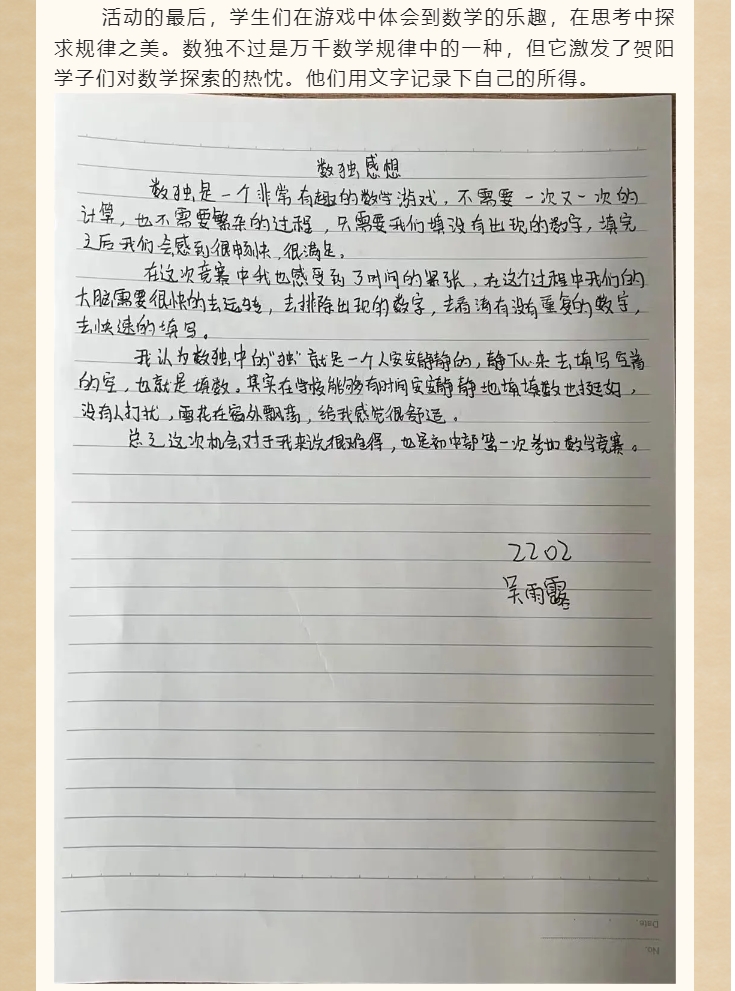 活动的最后，学生们在游戏中体会到数学的乐趣，在思考中探
求规律之美。数独不过是万千数学规律中的一种，但它激发了贺阳
学子们对数学探索的热忱。他们用文字记录下自己的所得。
数独感想
数独是一个非常有趣的数学游戏，不需要一次又一次的
计算，也不需要繁杂的过程，只需要我们填没有出现的数字，填完
之后我们会感到很畅快，很满足。
在这次竞赛中我也感受到了时间的紧张，在这个过程中我们的
大脑需要很快的去运转，去排除出现的数字，去看清有没有重复的数字，
去快速的填写。
我认为数独中的“独”就是一个人安安静静的，静下心来去填写
的空，也就是填数。其实在学校能够有时间安安静静地填填数也挺好，
没有人打扰，雪花在窗外飘荡，给我感觉很舒适。
总之这次机会对于我来说很难得，也是初中部第一次参加数学竞赛。
2202
吴雨露
Date.
No.